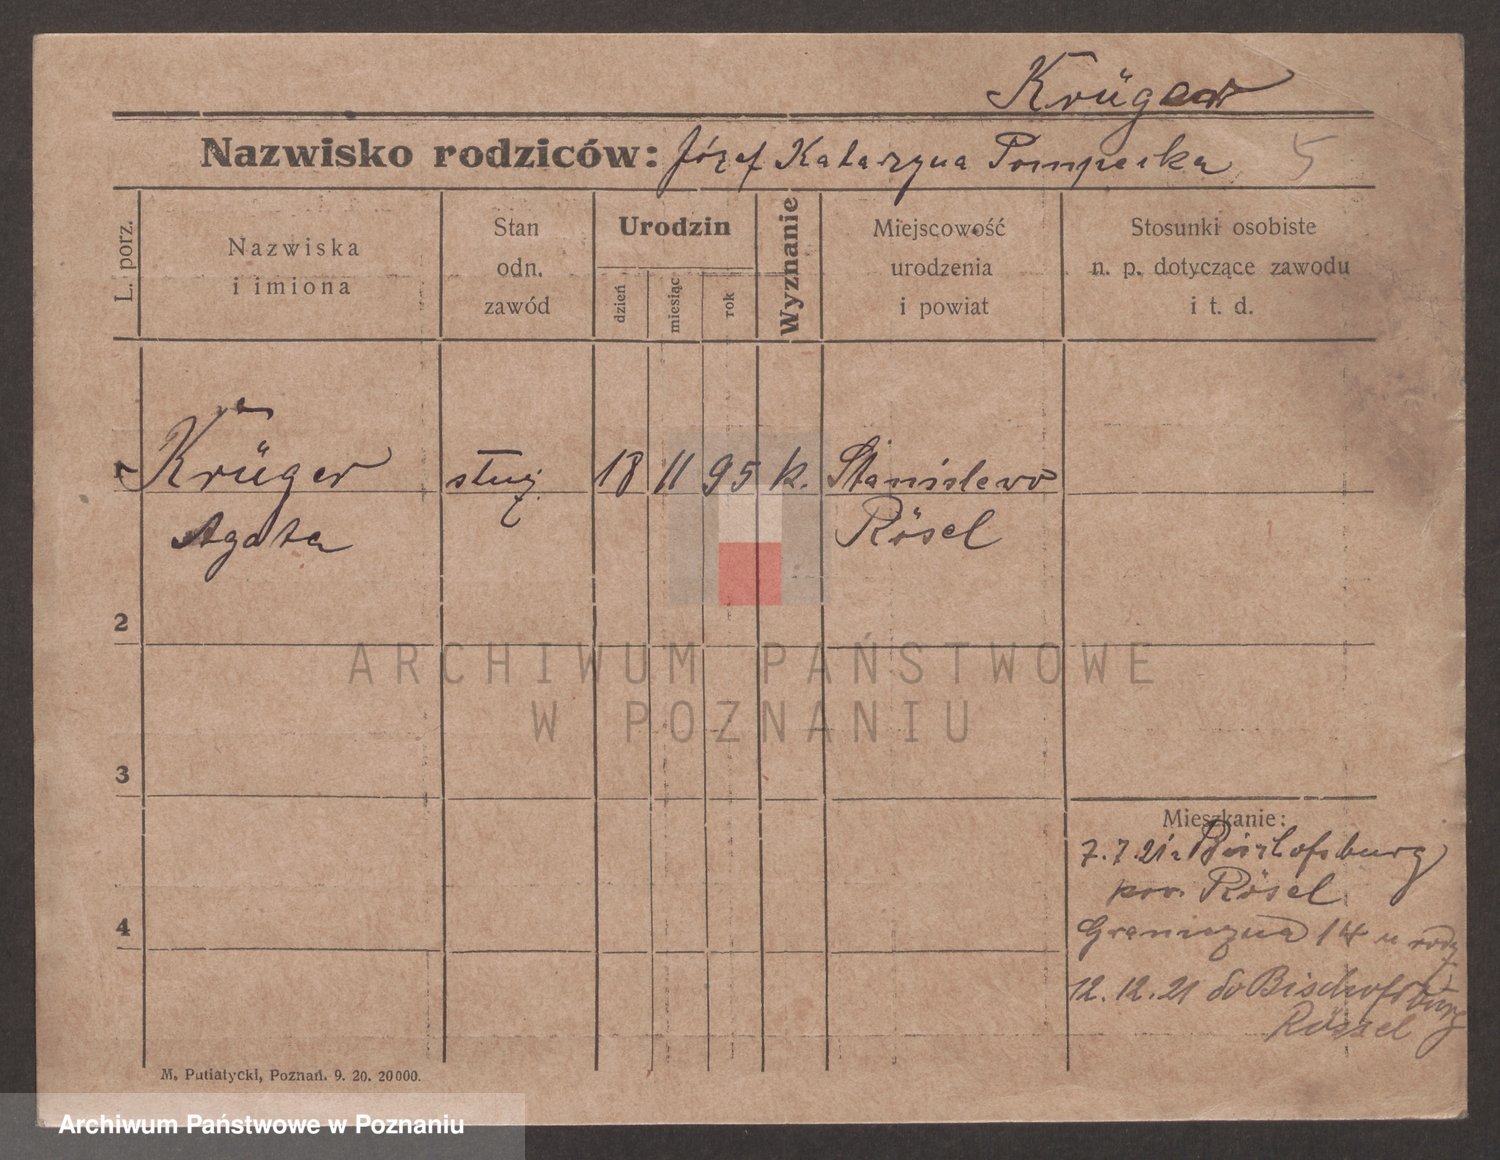 Krüger
Nazwisko rodziców: Józef Katarzyna Pompecka
5
L. porz.
Nazwiska
i imiona
Stan
odn.
zawód
Urodzin
dzień
miesiąc
rok
Wyznanie
Miejscowość
urodzenia
i powiat
Stosunki osobiste
n. p. dotyczące zawodu
i t. d.
1 Krüger służ. 18 11 95 k. Stanislewo
Agata Rösel
2
ARCHIWUM PAŃSTWOWE
W POZNANIU
3
Mieszkanie:
7.7.21 z Bischofsburg
pow. Rösel
4
Graniczna 14 u rodz
12.12.21 do Bischofsburg
Rössel
M. Putiatycki, Poznań. 9. 20. 20000.
Archiwum Państwowe w Poznaniu